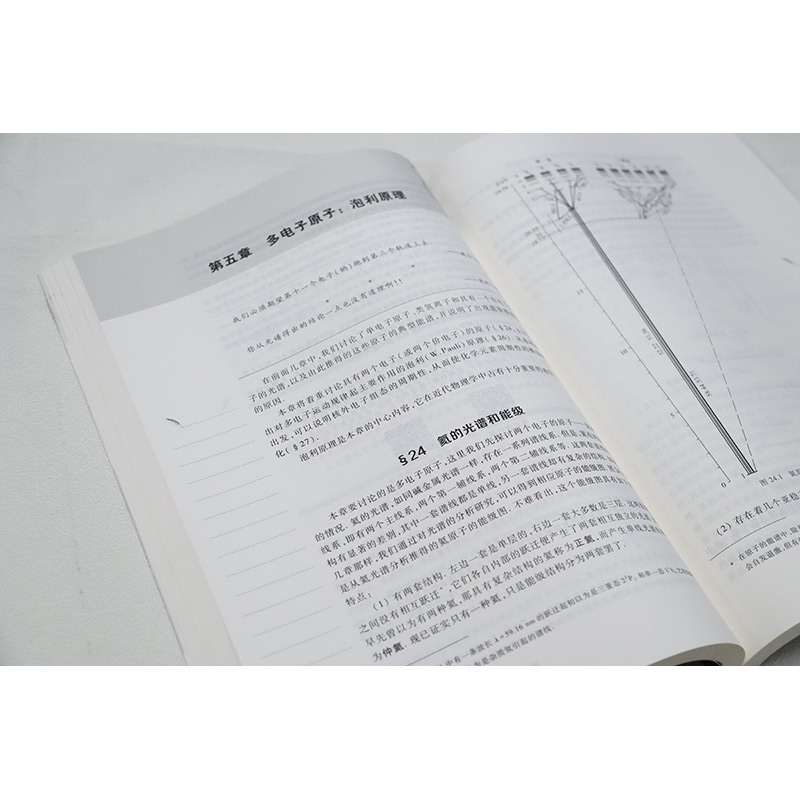 第五章 多电子原子：泡利原理
我们必须期望第十一个电子(钠)跑到第三个轨道上去.
你从光谱得出的结论一点也没有道理啊!!
在前面几章中,我们讨论了单电子原子、类氢离子和具有一个
子的光谱,以及由此推得的这些原子的典型能谱,并说明了出现
的原因.
本章将着重讨论具有两个电子(或两个价电子)的原子(§24,
出对多电子运动规律起主要作用的泡利(W.Pauli)原理(§26),
出发,可以说明核外电子组态的周期性,从而使化学元素周期性
化(§27).
泡利原理是本章的中心内容,它在近代物理学中占有十分重要
§24 氦的光谱和能级
本章要讨论的是多电子原子,这里我们先探讨两个电子的原子——
的情况.氦的光谱,如同碱金属光谱一样,存在一系列谱线系.但是,
线系,即有两个主线系,两个第一辅线系,两个第二辅线系等.这两套
构有显著的差别,其中一套谱线都是单线,另一套谱线却有复杂的结构.
几章那样,我们通过对光谱的分析研究,可以得到相应原子的能级图.
是从氦光谱分析推得的氦原子的能级图.不难看出,这个能级图具有
特点:
(1) 有两套结构.左边一套是单层的,右边一套大多数是三层.这两
之间没有相互跃迁*,它们各自内部的跃迁便产生了两套相互独立的
早先曾以为有两种氦,那具有复杂结构的氦称为正氦,而产生单线光
为仲氦.现已证实只有一种氦,只是能级结构分为两套罢了.
中有一条波长 λ=59.16 nm 的跃迁
为是杂质氦引起的谱线.
15
10
5
0
58.44
53.71
52.22
图 24.1 氦
(2) 存在着几个亚稳
* 在原子的能谱中,
会自发退激,但有